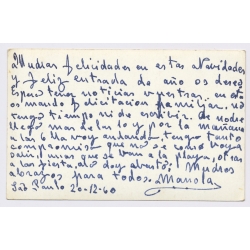 Muchas felicidades en estas Navidades
y feliz entrada de año os deseo
Espero tener noticias vuestras. en esta
os mando felicitacion familiar. no
tengo tiempo ni de escribir. de noche
llego mas de las 10 y por la mañana
a las 6 ya voy andando. tengo tantos
compromisos que no se como voy a
salir, unas que se van a la playa, otras
a las fiestas, doy abasto. Muchos
abrazos para todos. Manola
São Paulo 20-12-60